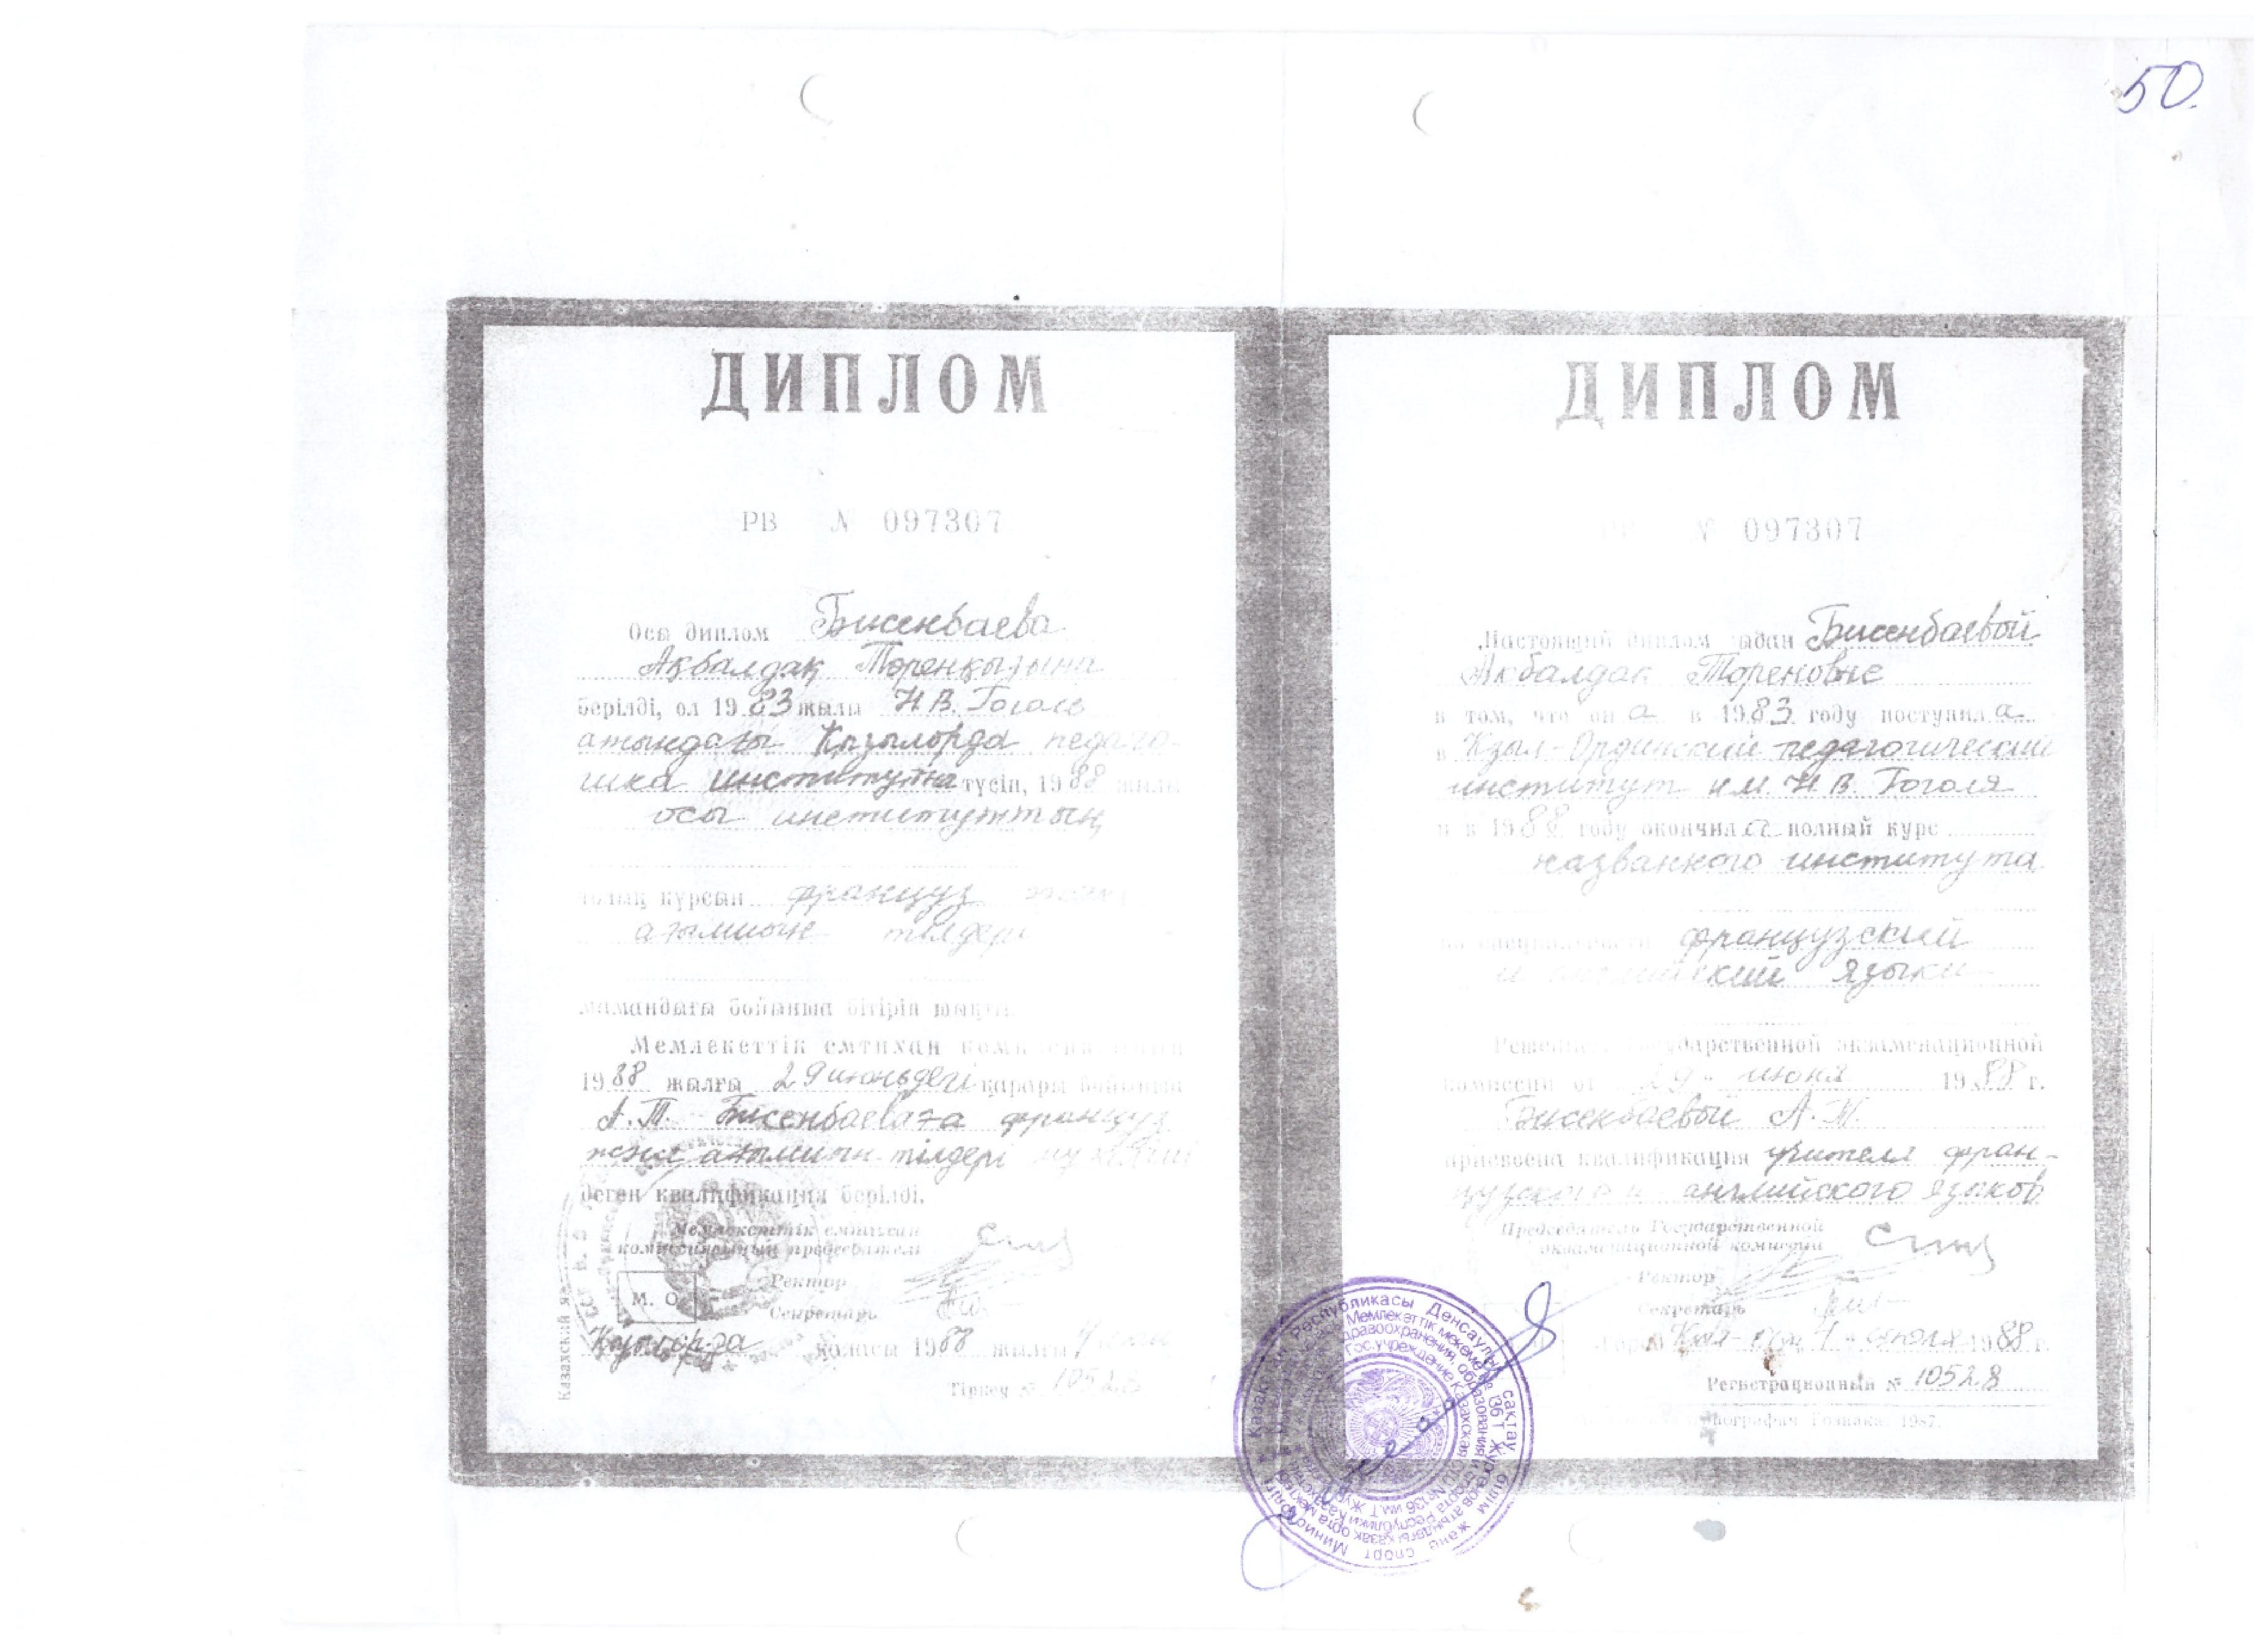 50.
ДИПЛОМ
РВ № 097307
Осы диплом Бисенбаева
Ақбалдақ Төренқызына
берілді, ол 1983 жылы Н.В. Гоголь
атындағы Қызылорда педаго-
гика институтына түсіп, 1988 жылы
осы институттың
толық курсын француз және
ағылшын тілдері
мамандығы бойынша бітіріп шықты.
Мемлекеттік емтихан комиссиясының
1988 жылғы 29 июньдегі қарары бойынша
А.Т. Бисенбаеваға француз
және ағылшын тілдері мұғалімі
деген квалификация берілді.
Мемлекеттік емтихан
комиссиясының председателі
Ректор
Секретарь
М. О.
Қызылорда қаласы 1988 жылғы
Тіркеу № 10528
Казахский яз.
ДИПЛОМ
№ 097307
Настоящий диплом выдан Бисенбаевой
Акбалдак Тореновне
в том, что она в 1983 году поступила
в Кзыл-Ординский педагогический
институт им. Н.В. Гоголя
и в 1988 году окончила полный курс
названного института
по специальности французский
и английский языки
Решением Государственной экзаменационной
комиссии от 29 июня 1988 г.
Бисенбаевой А.Т.
присвоена квалификация учителя фран-
цузского и английского языков
Председатель Государственной
экзаменационной комиссии
Ректор
Секретарь
Город 1 июля 1988 г.
Регистрационный № 10528
типография Гознака. 1987.
Республикасы Денсаулық сақтау білім және спорт